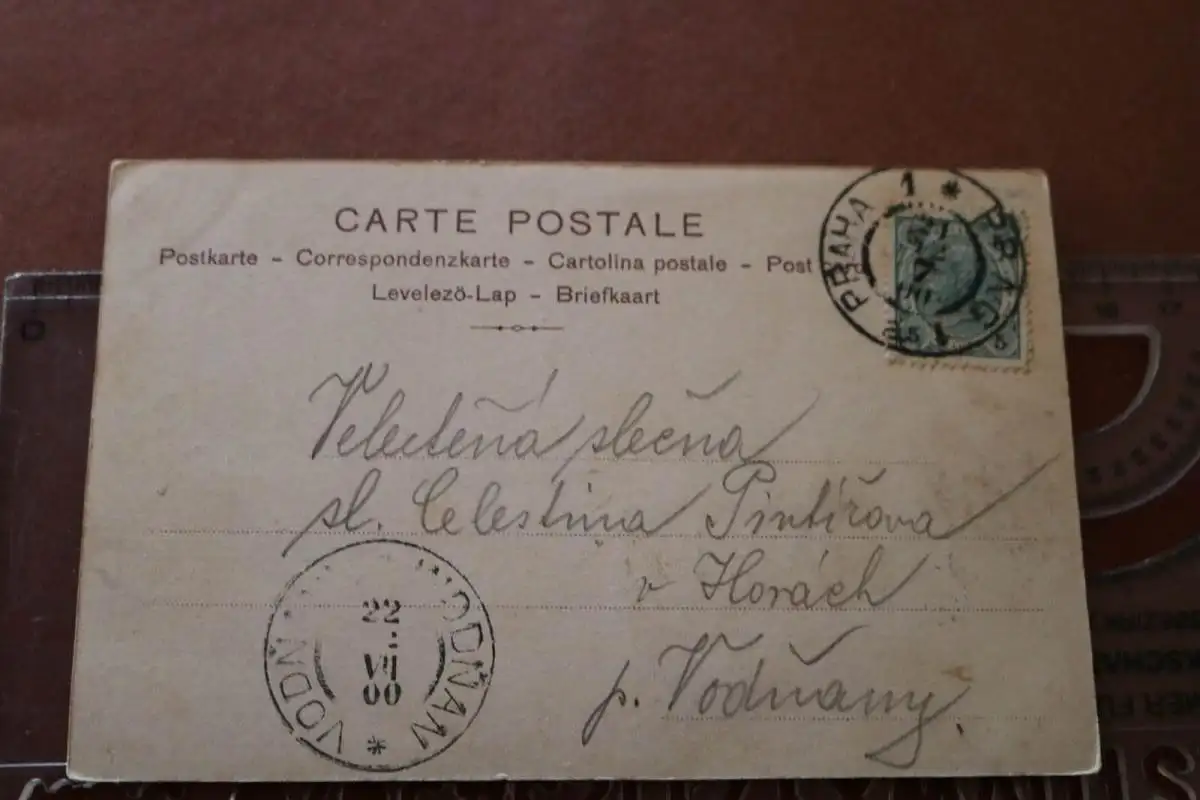 CARTE POSTALE
Postkarte - Correspondenzkarte - Cartolina postale - Post
Levelező-Lap - Briefkaart
PRAHA 1 * PRAG
5 5
Velectěná slečna
sl. Celestina Pintířova
v Horách
p. Vodňany.
VODŇAN * VODN
22
VII
00